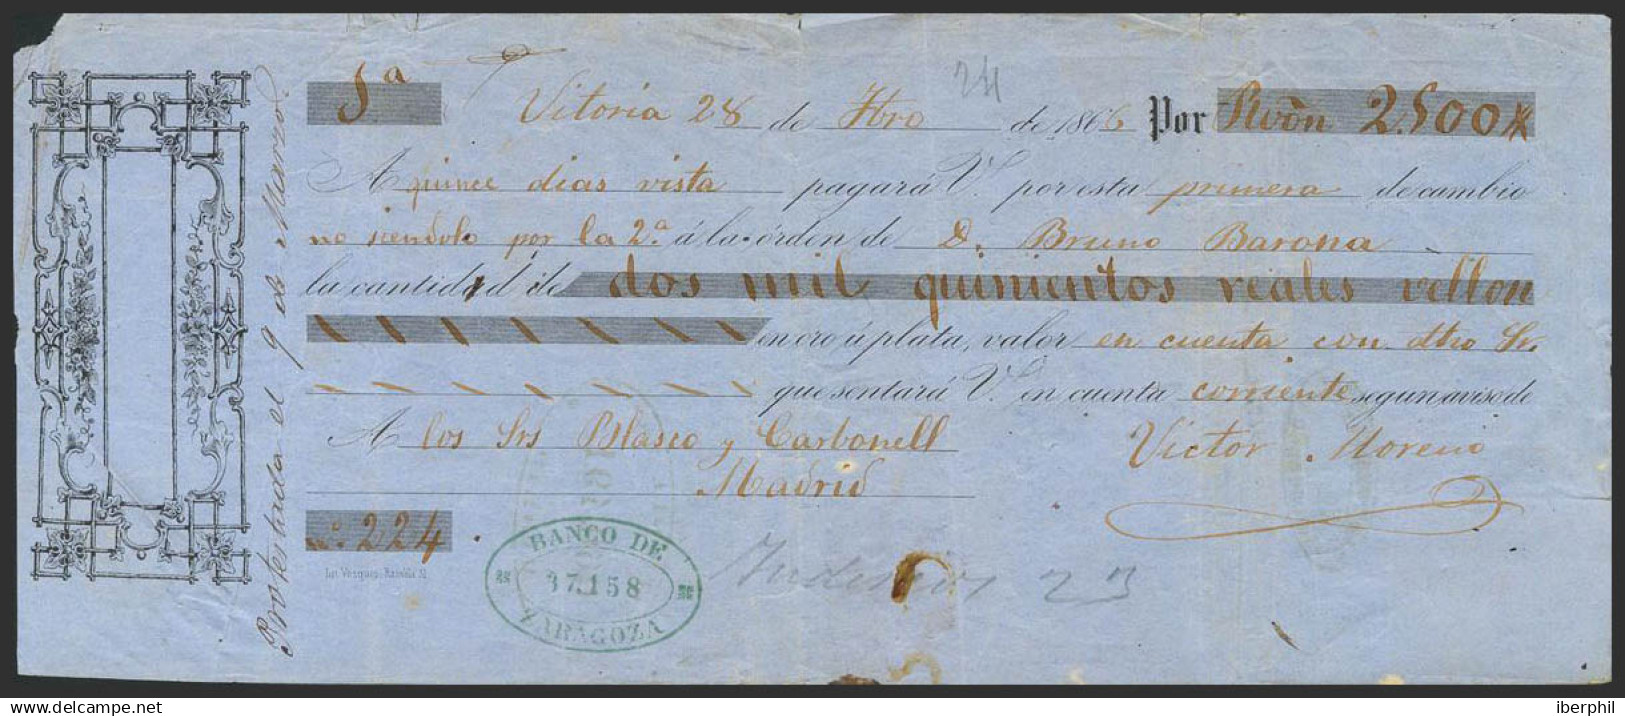 1a
Vitoria 28 de Fbro de 1866 Por Rvon 2.500
A quince dias vista pagará V. por esta primera de cambio
no siendolo por la 2.a á la órden de D. Bruno Barona
la cantidad de dos mil quinientos reales vellon
en oro ú plata, valor en cuenta con dho Sr.
que sentará V. en cuenta corriente segun aviso de
A los Srs Blasco y Carbonell
Victor Moreno
Madrid
N.o 224.
BANCO DE
37.158
ZARAGOZA
Protestada el 9 de Marzo.
iberphil